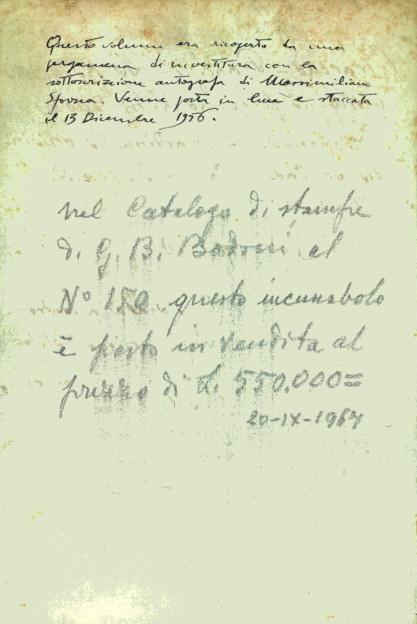 Questo volume era ricoperto da una
pergamena di investitura con la
sottoscrizione autografa di Massimiliano
Sforza. Venne posta in luce e staccata
il 13 Dicembre 1956.
Nel Catalogo di stampe
di G. B. Bodoni al
N° 150 questo incunabolo
è posto in vendita al
prezzo di L. 550.000=
20-IX-1967